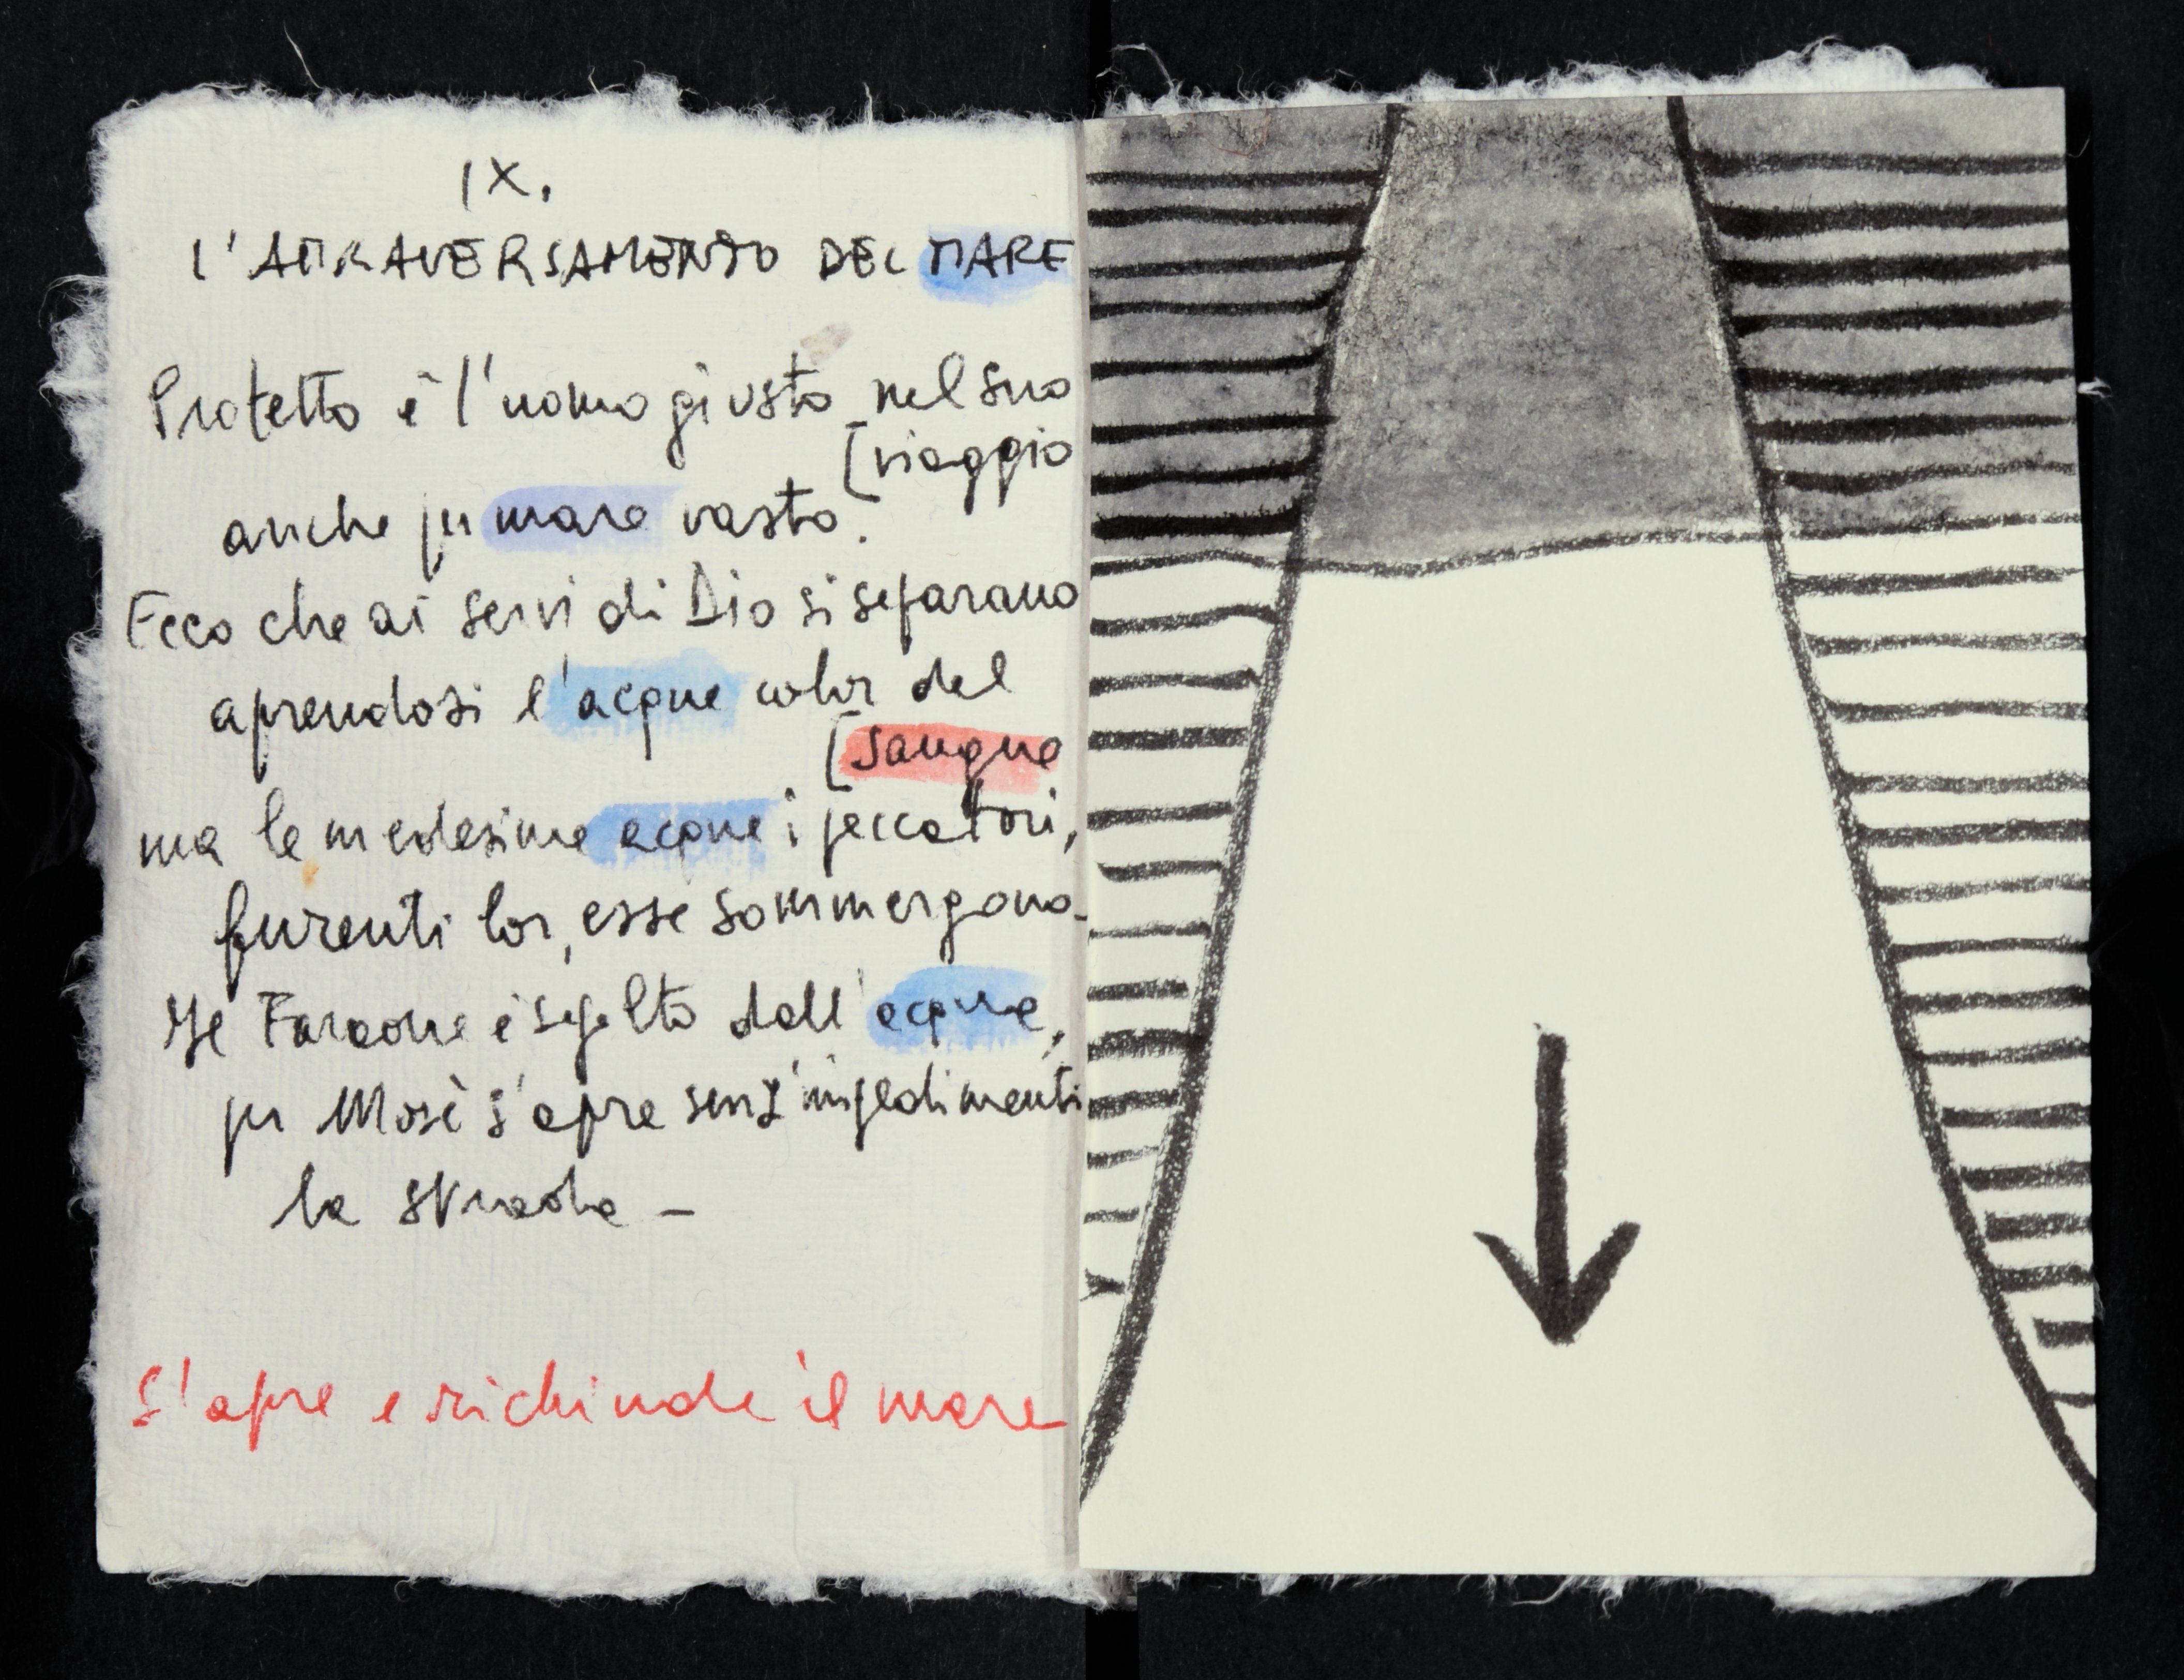 IX.
L'ATTRAVERSAMENTO DEL MARE
Protetto è l'uomo giusto nel suo
[viaggio
anche per mare vasto.
Ecco che ai servi di Dio si separano
aprendosi l'acque color del
[sangue
ma le medesime acque i peccatori,
furenti lor, esse sommergono.
Il Faraone è sepolto dall'acqua,
per Mosè s'apre senz'impedimenti
la strada –
S'apre e richiude il mare